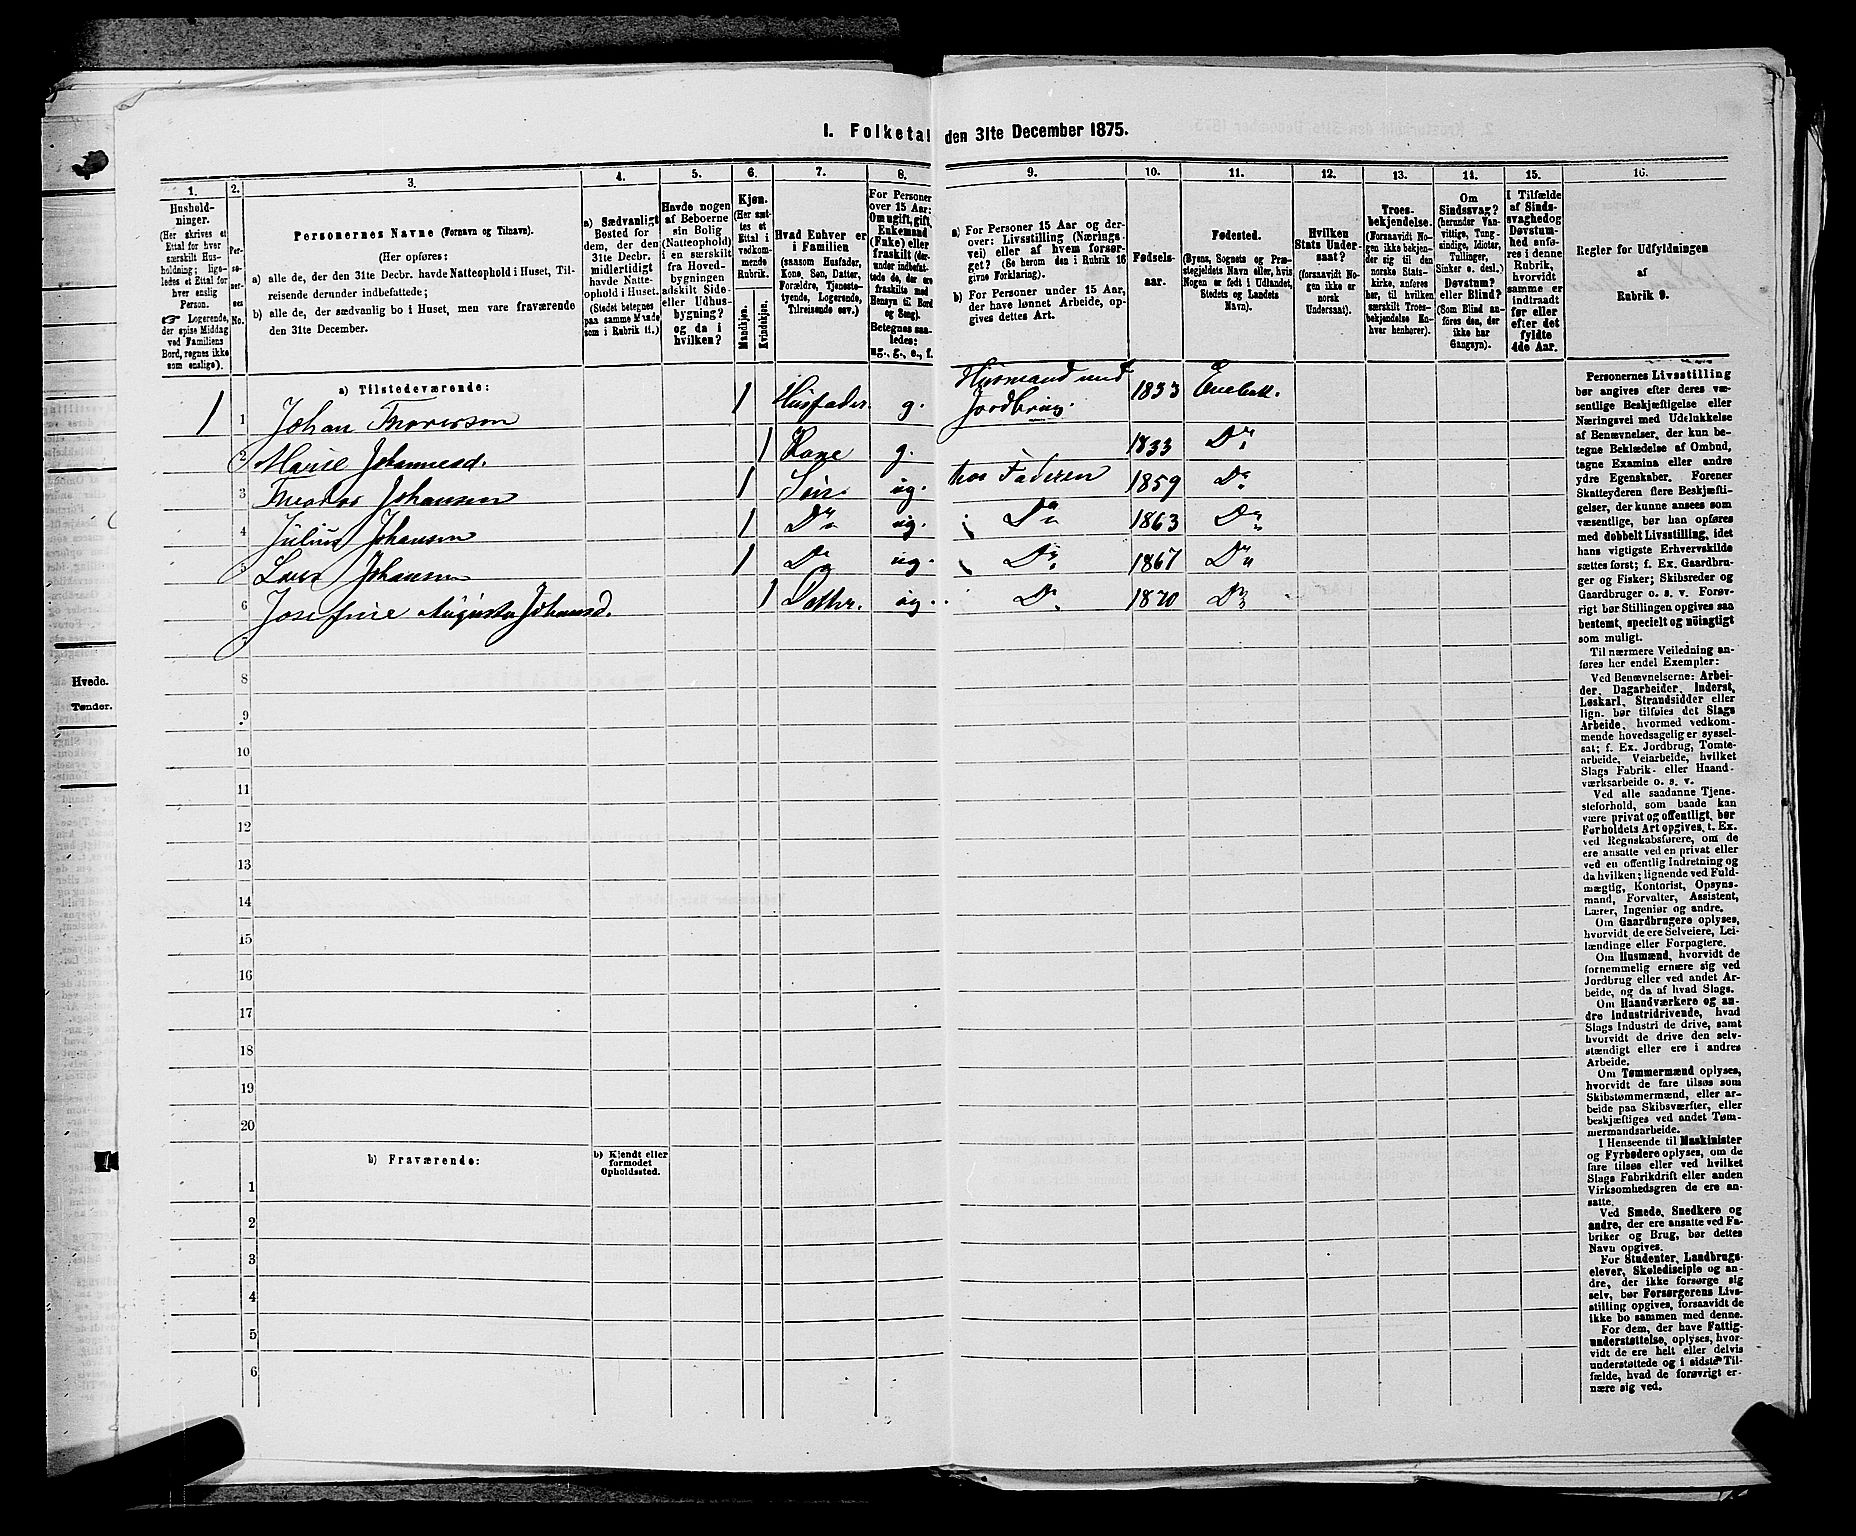 I. Folketal den 31te December 1875.
1.
Hushold-
ninger.
(Her skrives et
Ettal for hver
særskilt Hus-
holdning; lige-
ledes et Ettal for
hver enslig
Person.
☞ Logerende,
der spise Middag
ved Familiens
Bord, regnes ikke
som enslige).
2.
Per-
so-
ner-
nes
No.
3.
Personernes Navne (Fornavn og Tilnavn).
(Her opføres:
a) alle de, der den 31te Decbr. havde Natteophold i Huset, Til-
reisende derunder indbefattede;
b) alle de, der sædvanlig bo i Huset, men vare fraværende
den 31te December.
4.
a) Sædvanligt
Bosted for
dem, der den
31te Decbr.
midlertidigt
havde Natte-
ophold i Huset.
(Stedet betegnes
paa samme Maade
som i Rubrik 11.)
5.
Havde nogen
af Beboerne
sin Bolig
(Natteophold)
i en særskilt
fra Hoved-
bygningen
adskilt Side-
eller Udhus-
bygning?
og da i
hvilken?
6.
Kjøn.
(Her sæt-
tes et
Ettal i
vedkom-
mende
Rubrik.
Mandkjøn.
Kvindekjøn.
7.
Hvad Enhver er
i Familien
(saasom Husfader,
Kone, Søn, Datter,
Forældre, Tjeneste-
tyende, Logerende,
Tilreisende osv.)
8.
For Personer
over 15 Aar:
Om ugift, gift,
Enkemand
(Enke) eller
fraskilt (der-
under indbefat-
tede de, der ere
fraskilte med
Hensyn til Bord
og Seng).
Betegnes saa-
ledes:
ug., g., e., f.
9.
a) For Personer 15 Aar og der-
over: Livsstilling (Nærings-
vei) eller af hvem forsør-
get? (Se herom den i Rubrik 16
givne Forklaring).
b) For Personer under 15 Aar,
der have lønnet Arbeide, op-
gives dettes Art.
10.
Fødsels-
aar.
11.
Fødested.
(Byens, Sognets og Præ-
stegjeldets Navn eller, hvis
Nogen er født i Udlandet,
Stedets og Landets
Navn).
12.
Hvilken
Stats Under-
saat?
(forsaavidt No-
gen ikke er
norsk
Undersaat).
13.
Troes-
bekjendelse.
(Forsaavidt No-
gen ikke bekjen-
der sig til den
norske Stats-
kirke, anføres
her, til hvilken
særskilt Troes-
bekjendelse En-
hver henhører).
14.
Om
Sindssvag?
(herunder Van-
vittige, Tung-
sindige, Idioter,
Tullinger,
Sinker o. desl.)
Døvstum?
eller Blind?
(Som Blind an-
føres den, der
ikke har
Gangsyn).
15.
I Tilfælde
af Sinds-
svaghed og
Døvstum-
hed anfø-
res i denne
Rubrik,
hvorvidt
samme er
indtraadt
før eller
efter det
fyldte
4de Aar.
16.
Regler for Udfyldningen
af
Rubrik 9.
a) Tilstedeværende:
1 1 Johan Thoresson 1 Husfader. g. Husmand med Jordbrug. 1833 Enebak.
2 Marie Johannesd. 1 Kone g. 1833 Do
3 Theodor Johansen 1 Søn ug. hos Faderen 1859 Do
4 Julius Johansen 1 Do ug. Do 1863 Do
5 Lars Johansen 1 Do ug. Do 1867 Do
6 Josefine Augusta Johansd. 1 Datter. ug. Do 1870 Do
7
8
9
10
11
12
13
14
15
16
17
18
19
20
b) Fraværende:
b) Kjendt eller
formodet
Opholdssted.
1
2
3
4
5
6
Personernes Livsstilling
bør angives efter deres væ-
sentlige Beskjæftigelse eller
Næringsvei med Udelukkelse
af Benævnelser, der kun be-
tegne Beklædelse af Ombud,
tagne Examina eller andre
ydre Egenskaber. Forener
Skatteyderen flere Beskjæfti-
gelser, der kunne ansees som
væsentlige, bør han opføres
med dobbelt Livsstilling, idet
hans vigtigste Erhvervskilde
sættes først; f. Ex. Gaardbru-
ger og Fisker; Skibsreder og
Gaardbruger o. s. v. Forøv-
rigt bør Stillingen opgives saa
bestemt, specielt og nöiagtigt
som muligt.
Til nærmere Veiledning an-
føres her endel Exempler:
Ved Benævnelserne: Arbei-
der, Dagarbeider, Inderst,
Løskarl, Strandsidder eller
lign. bør tilføies det Slags
Arbeide, hvormed vedkom-
mende hovedsagelig er syssel-
sat; f. Ex. Jordbrug, Tomte-
arbeide, Veiarbeide, hvilket
Slags Fabrik- eller Haand-
værksarbeide o. s. v.
Ved alle saadanne Tjene-
steforhold, som baade kan
være privat og offentligt, bør
Forholdets Art opgives, t. Ex.
ved Regnskabsførere, om de
ere ansatte ved en privat eller
ved en offentlig Indretning og
da hvilken; lignende ved Fuld-
mægtig, Kontorist, Opsyns-
mand, Forvalter, Assistent,
Lærer, Ingeniør og andre.
Om Gaardbrugere oplyses,
hvorvidt de ere Selveiere, Lei-
lændinge eller Forpagtere.
Om Husmænd, hvorvidt de
fornemmelig ernære sig ved
Jordbrug eller ved andet Ar-
beide, og da af hvad Slags.
Om Haandværkere og an-
dre Industridrivende, hvad
Slags Industri de drive, samt
hvorvidt de drive den selv-
stændigt eller ere i andres
Arbeide.
Om Tømmermænd oplyses,
hvorvidt de fare tilsøs som
Skibstømmermænd, eller ar-
beide paa Skibsværfter, eller
beskjæftiges ved andet Tøm-
mermandsarbeide.
I Henseende til Maskinister
og Fyrbødere oplyses, om de
fare tilsøs eller ved hvilket
Slags Fabrikdrift eller anden
Virksomhedsgren de ere an-
satte.
Ved Smede, Snedkere og
andre, der ere ansatte ved Fa-
briker og Brug, bør dettes
Navn opgives.
For Studenter, Landbrugs-
elever, Skoledisciple og an-
dre, der ikke forsørge sig
selv, bør Forsørgerens Livs-
stilling opgives, forsaavidt de
ikke bo sammen med denne.
For dem, der have Fattig-
understøttelse, oplyses, hvor-
vidt de ere helt eller delvis
understøttede og i sidste Til-
fælde, hvad de forøvrigt er-
nære sig ved.
Hvede.
Tønder.